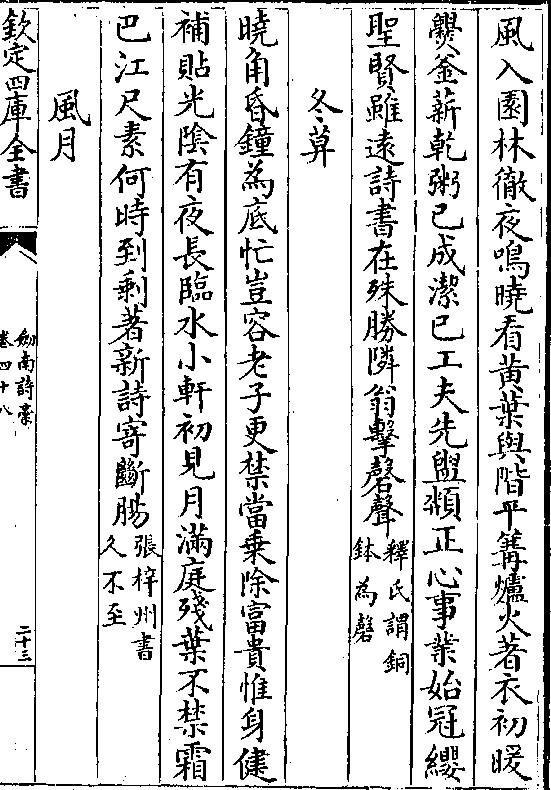 風入園林徹夜鳴曉看黄葉與階平篝爐火著衣初暖
爨釜薪乾粥已成潔已工夫先盥頮正心事業始冠纓
聖賢雖遠詩書在殊勝隣翁擊磬聲釋氏謂銅鉢為磬
冬暮
曉角昏鐘為底忙豈容老子更禁當乗除富貴惟身健
補貼光陰有夜長臨水小軒初見月滿庭殘葉不禁霜
巴江尺素何時到剩著新詩寄斷腸張梓州書久不至
風月
欽定四庫全書
劔南詩稾
卷四十八
二十三